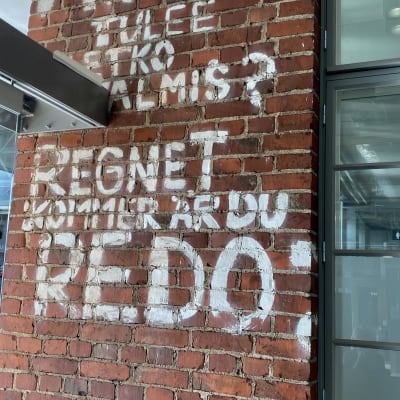 TULEE
ETKO
ALMIS?
REGNET
KOMMER ÄR DU
REDO?